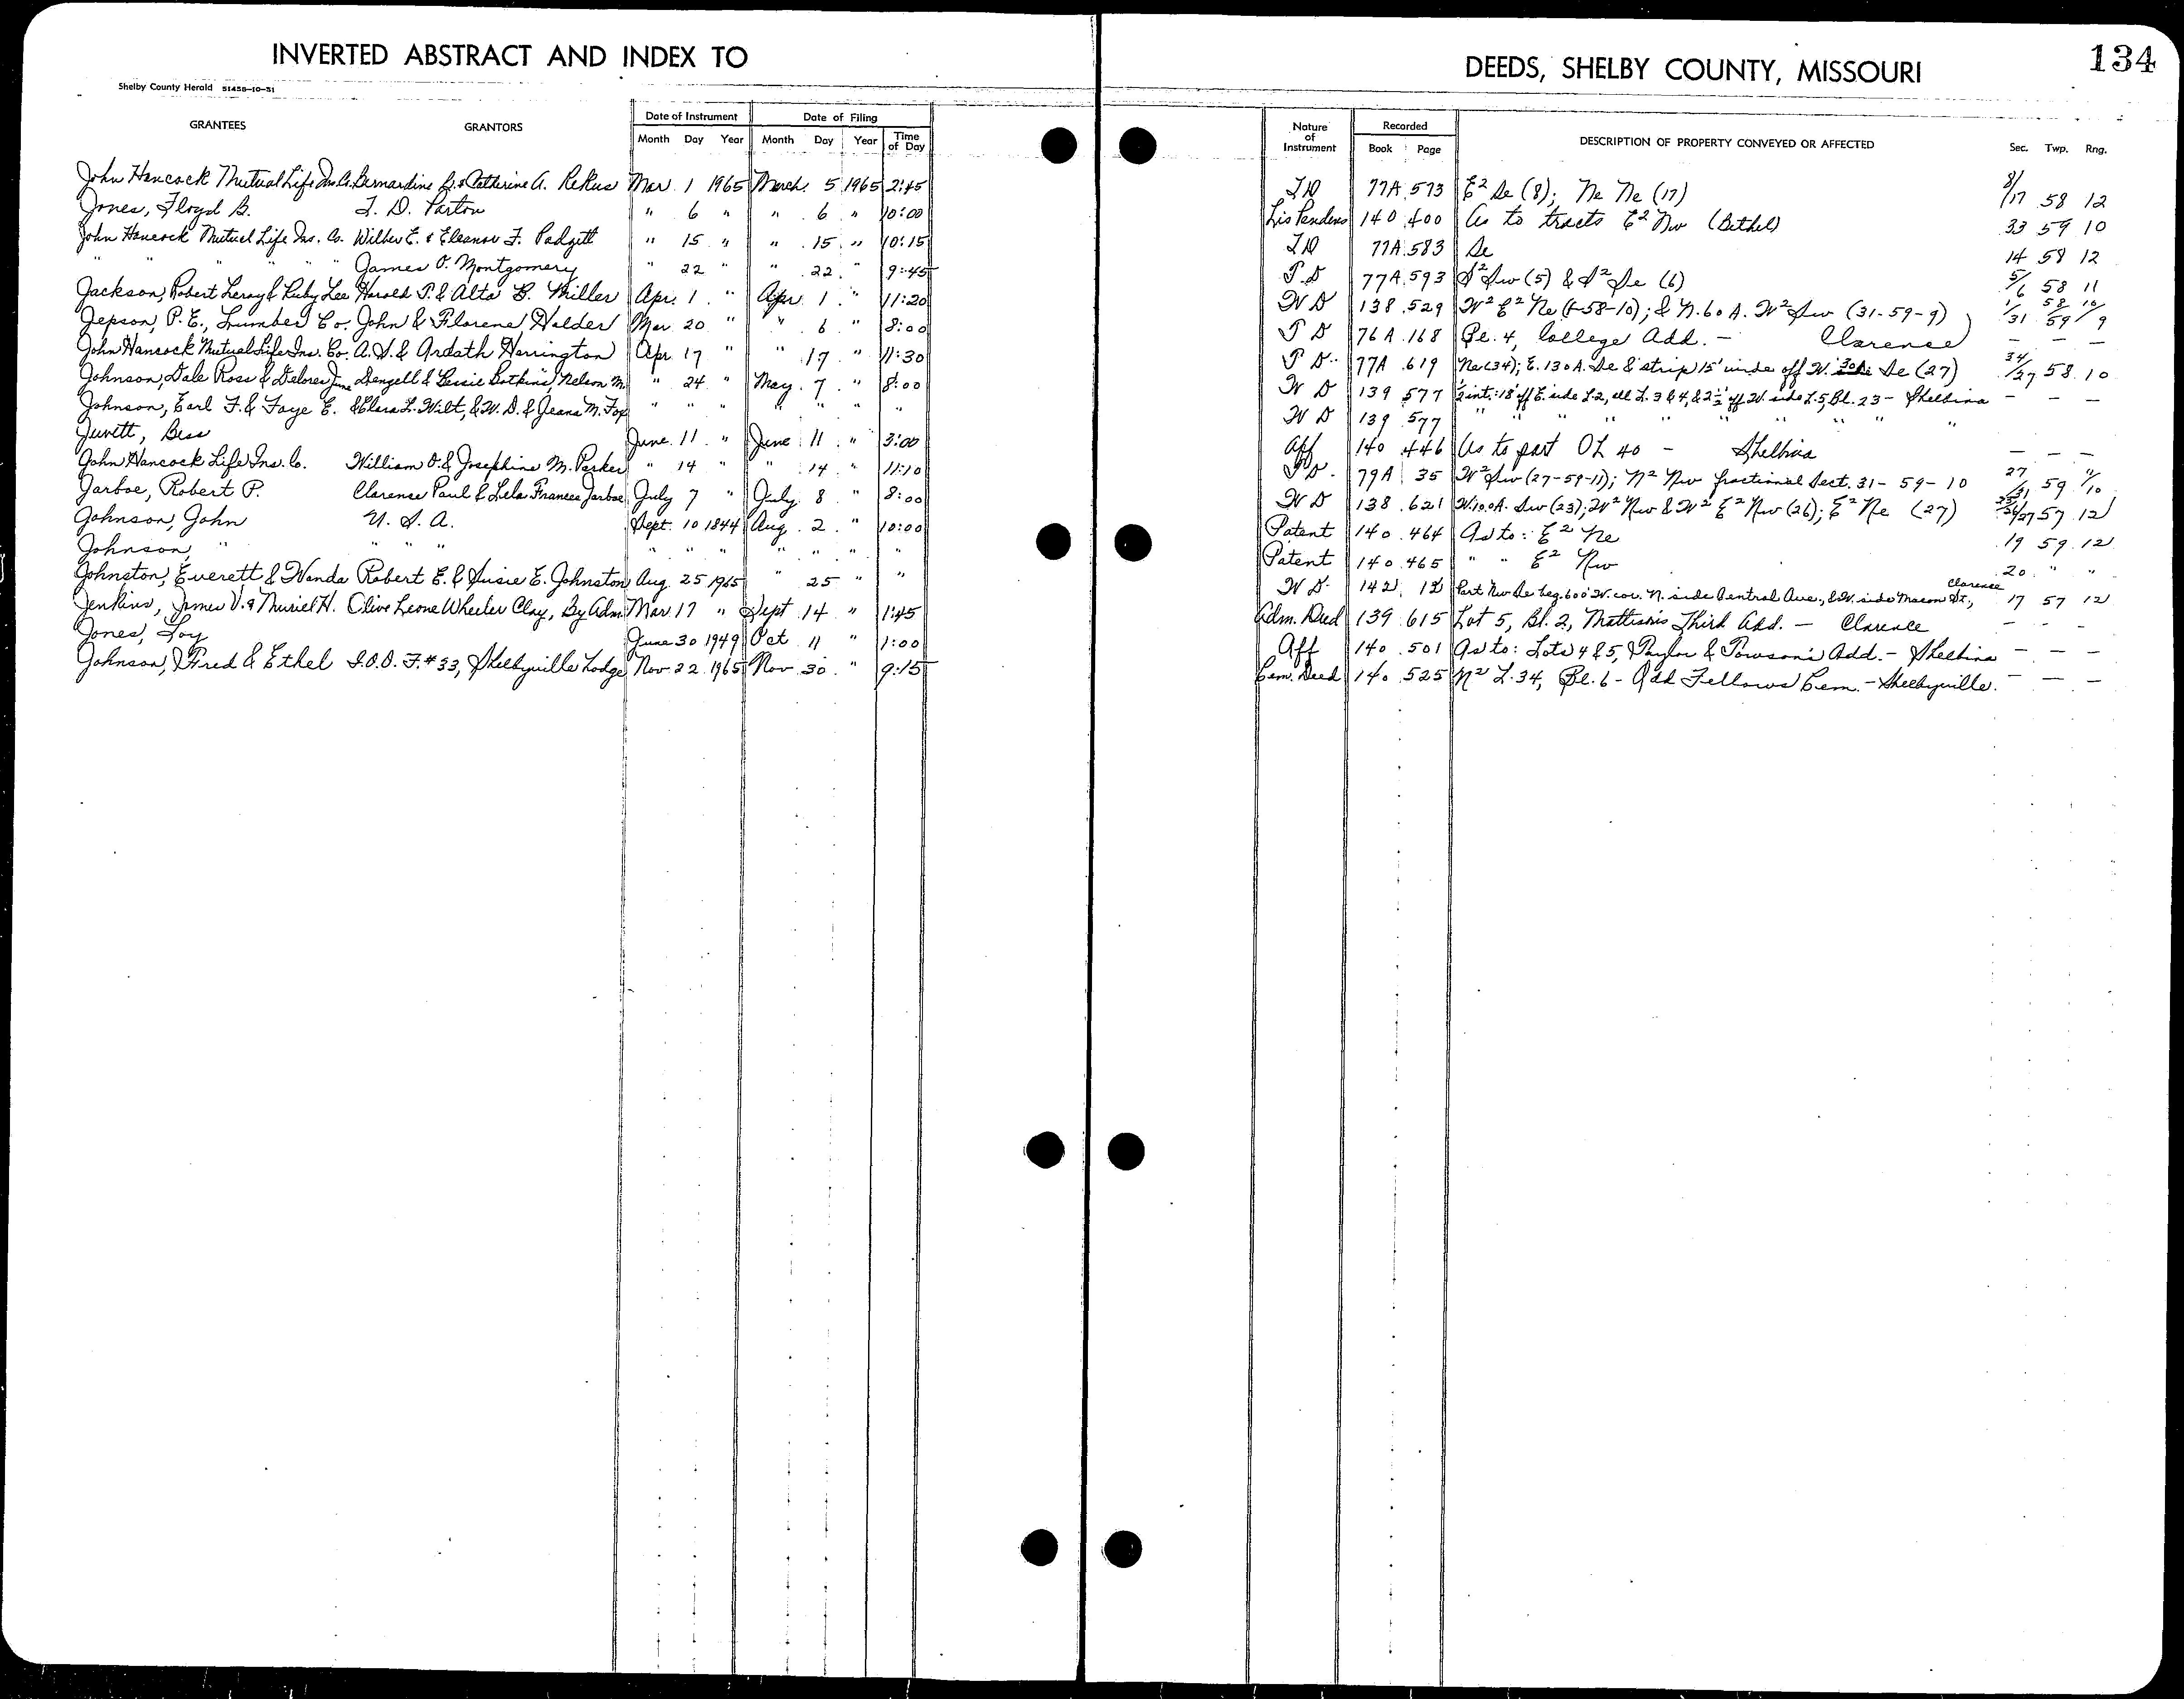 INVERTED ABSTRACT AND INDEX TO
DEEDS, SHELBY COUNTY, MISSOURI
134
Shelby County Herald 51458-10-51
GRANTEES GRANTORS Date of Instrument Date of Filing Nature of Instrument Recorded DESCRIPTION OF PROPERTY CONVEYED OR AFFECTED Sec. Twp. Rng.
Month Day Year Month Day Year Time of Day Book Page
John Hancock Mutual Life Ins. Co. Bernardine & Catherine A. Mar. 1 1965 March 5 1965 2:45 T D 77A 573 E² Se (8); Ne Ne (17) 8/17 58 12
Jones, Floyd B. T. D. Parton " 6 " " 6 " 10:00 Lis Pendens 140 400 As to tracts E² Nw (Bethel) 33 59 10
John Hancock Mutual Life Ins. Co. Wilber E. & Eleanor F. Padgett " 15 " " 15 " 10:15 T D 77A 583 Se 14 58 12
" " " " " James O. Montgomery " 22 " " 22 " 9:45 T D 77A 593 S² Sw (5) & S² Se (6) 5/6 58 11
Jackson, Robert Leroy & Ruby Lee Harold P. & Alta B. Miller Apr. 1 " Apr. 1 " 11:20 W D 138 529 W² E² Ne (1-58-10); & N. 60 A. W² Sw (31-59-9) 1/31 58/59 10/9
Jepson, P. E., Lumber Co. John & Florene Holder Mar. 20 " " 6 " 8:00 T D 76A 168 Bl. 4, College Add. - Clarence — — —
John Hancock Mutual Life Ins. Co. A. S. & Ardath Harrington Apr. 17 " " 17 " 11:30 T D 77A 619 Ne (34); E. 130 A. Se & strip 15' wide off W. Se (27) 34/27 58 10
Johnson, Dale Ross & Delores June Denzell & Bessie Botkins, Nelson M. " 24 " May 7 " 8:00 W D 139 577 ½ int: 18' off E. side L2, all L. 3 & 4, & 2½' off W. side L.5, Bl. 23 - Shelbina — — —
Johnson, Earl F. & Faye E. & Clara L. Wilt, & W. D. & Jeana M. Fox " " " " " " " W D 139 577 " " " " " " " "
Juvett, Bess June 11 " June 11 " 3:00 Aff 140 446 As to part OL 40 - Shelbina — — —
John Hancock Life Ins. Co. William O. & Josephine M. Parker " 14 " " 14 " 11:10 T D. 79A 35 W² Sw (27-59-11); N² Nw fractional Sect. 31-59-10 27/31 59 11/10
Jarboe, Robert P. Clarence Paul & Lela Frances Jarboe July 7 " July 8 " 8:00 W D 138 621 W. 100 A. Sw (23); W² Nw & W² E² Nw (26); E² Ne (27) 23/26/27 57 12
Johnson, John U. S. A. Sept. 10 1844 Aug. 2 " 10:00 Patent 140 464 As to: E² Ne 19 59 12
Johnson, " " " " " " " " " " " Patent 140 465 " " E² Nw 20 " "
Johnston, Everett & Wanda Robert E. & Susie E. Johnston Aug. 25 1965 " 25 " " W D 142 12 Part Nw Se beg. 600' W. cor. N. side Central Ave., & W. side Macon St., Clarence 17 57 12
Jenkins, James V. & Muriel H. Olive Leone Wheeler Clay, By Adm. Mar 17 " Sept 14 " 1:45 Adm. Deed 139 615 Lot 5, Bl. 2, Third Add. - Clarence — — —
Jones, Loy June 30 1949 Oct 11 " 1:00 Aff 140 501 As to: Lots 4 & 5, Taylor & Towson's Add. - Shelbina — — —
Johnson, Fred & Ethel I.O.O.F. #33, Shelbyville Lodge Nov. 22 1965 Nov 30 " 9:15 Cem. Deed 140 525 N² L. 34, Bl. 6 - Odd Fellows Cem. - Shelbyville. — — —